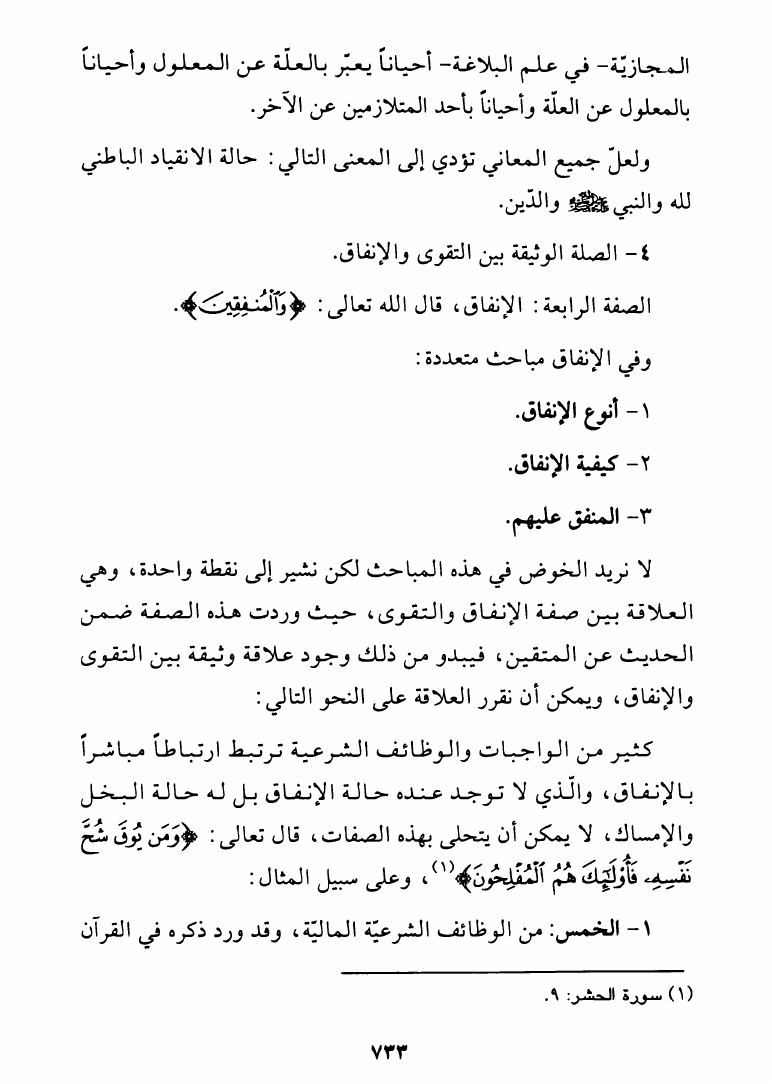 المجازيّة- في علم البلاغة- أحياناً يعبّر بالعلّة عن المعلول وأحياناً
بالمعلول عن العلّة وأحياناً بأحد المتلازمين عن الآخر.
ولعلّ جميع المعاني تؤدي إلى المعنى التالي: حالة الانقياد الباطني
لله والنبي ﷺ والدّين.
٤- الصلة الوثيقة بين التقوى والإنفاق.
الصفة الرابعة: الإنفاق، قال الله تعالى: ﴿وَٱلْمُنفِقِينَ﴾.
وفي الإنفاق مباحث متعددة:
١- أنوع الإنفاق.
٢- كيفية الإنفاق.
٣- المنفق عليهم.
لا نريد الخوض في هذه المباحث لكن نشير إلى نقطة واحدة، وهي
العلاقة بين صفة الإنفاق والتقوى، حيث وردت هذه الصفة ضمن
الحديث عن المتقين، فيبدو من ذلك وجود علاقة وثيقة بين التقوى
والإنفاق، ويمكن أن نقرر العلاقة على النحو التالي:
كثير من الواجبات والوظائف الشرعية ترتبط ارتباطاً مباشراً
بالإنفاق، والّذي لا توجد عنده حالة الإنفاق بل له حالة البخل
والإمساك، لا يمكن أن يتحلى بهذه الصفات، قال تعالى: ﴿وَمَن يُوقَ شُحَّ
نَفْسِهِۦ فَأُوْلَٰٓئِكَ هُمُ ٱلْمُفْلِحُونَ﴾(١)، وعلى سبيل المثال:
١- الخمس: من الوظائف الشرعيّة الماليّة، وقد ورد ذكره في القرآن
(١) سورة الحشر: ٩.
٧٣٣